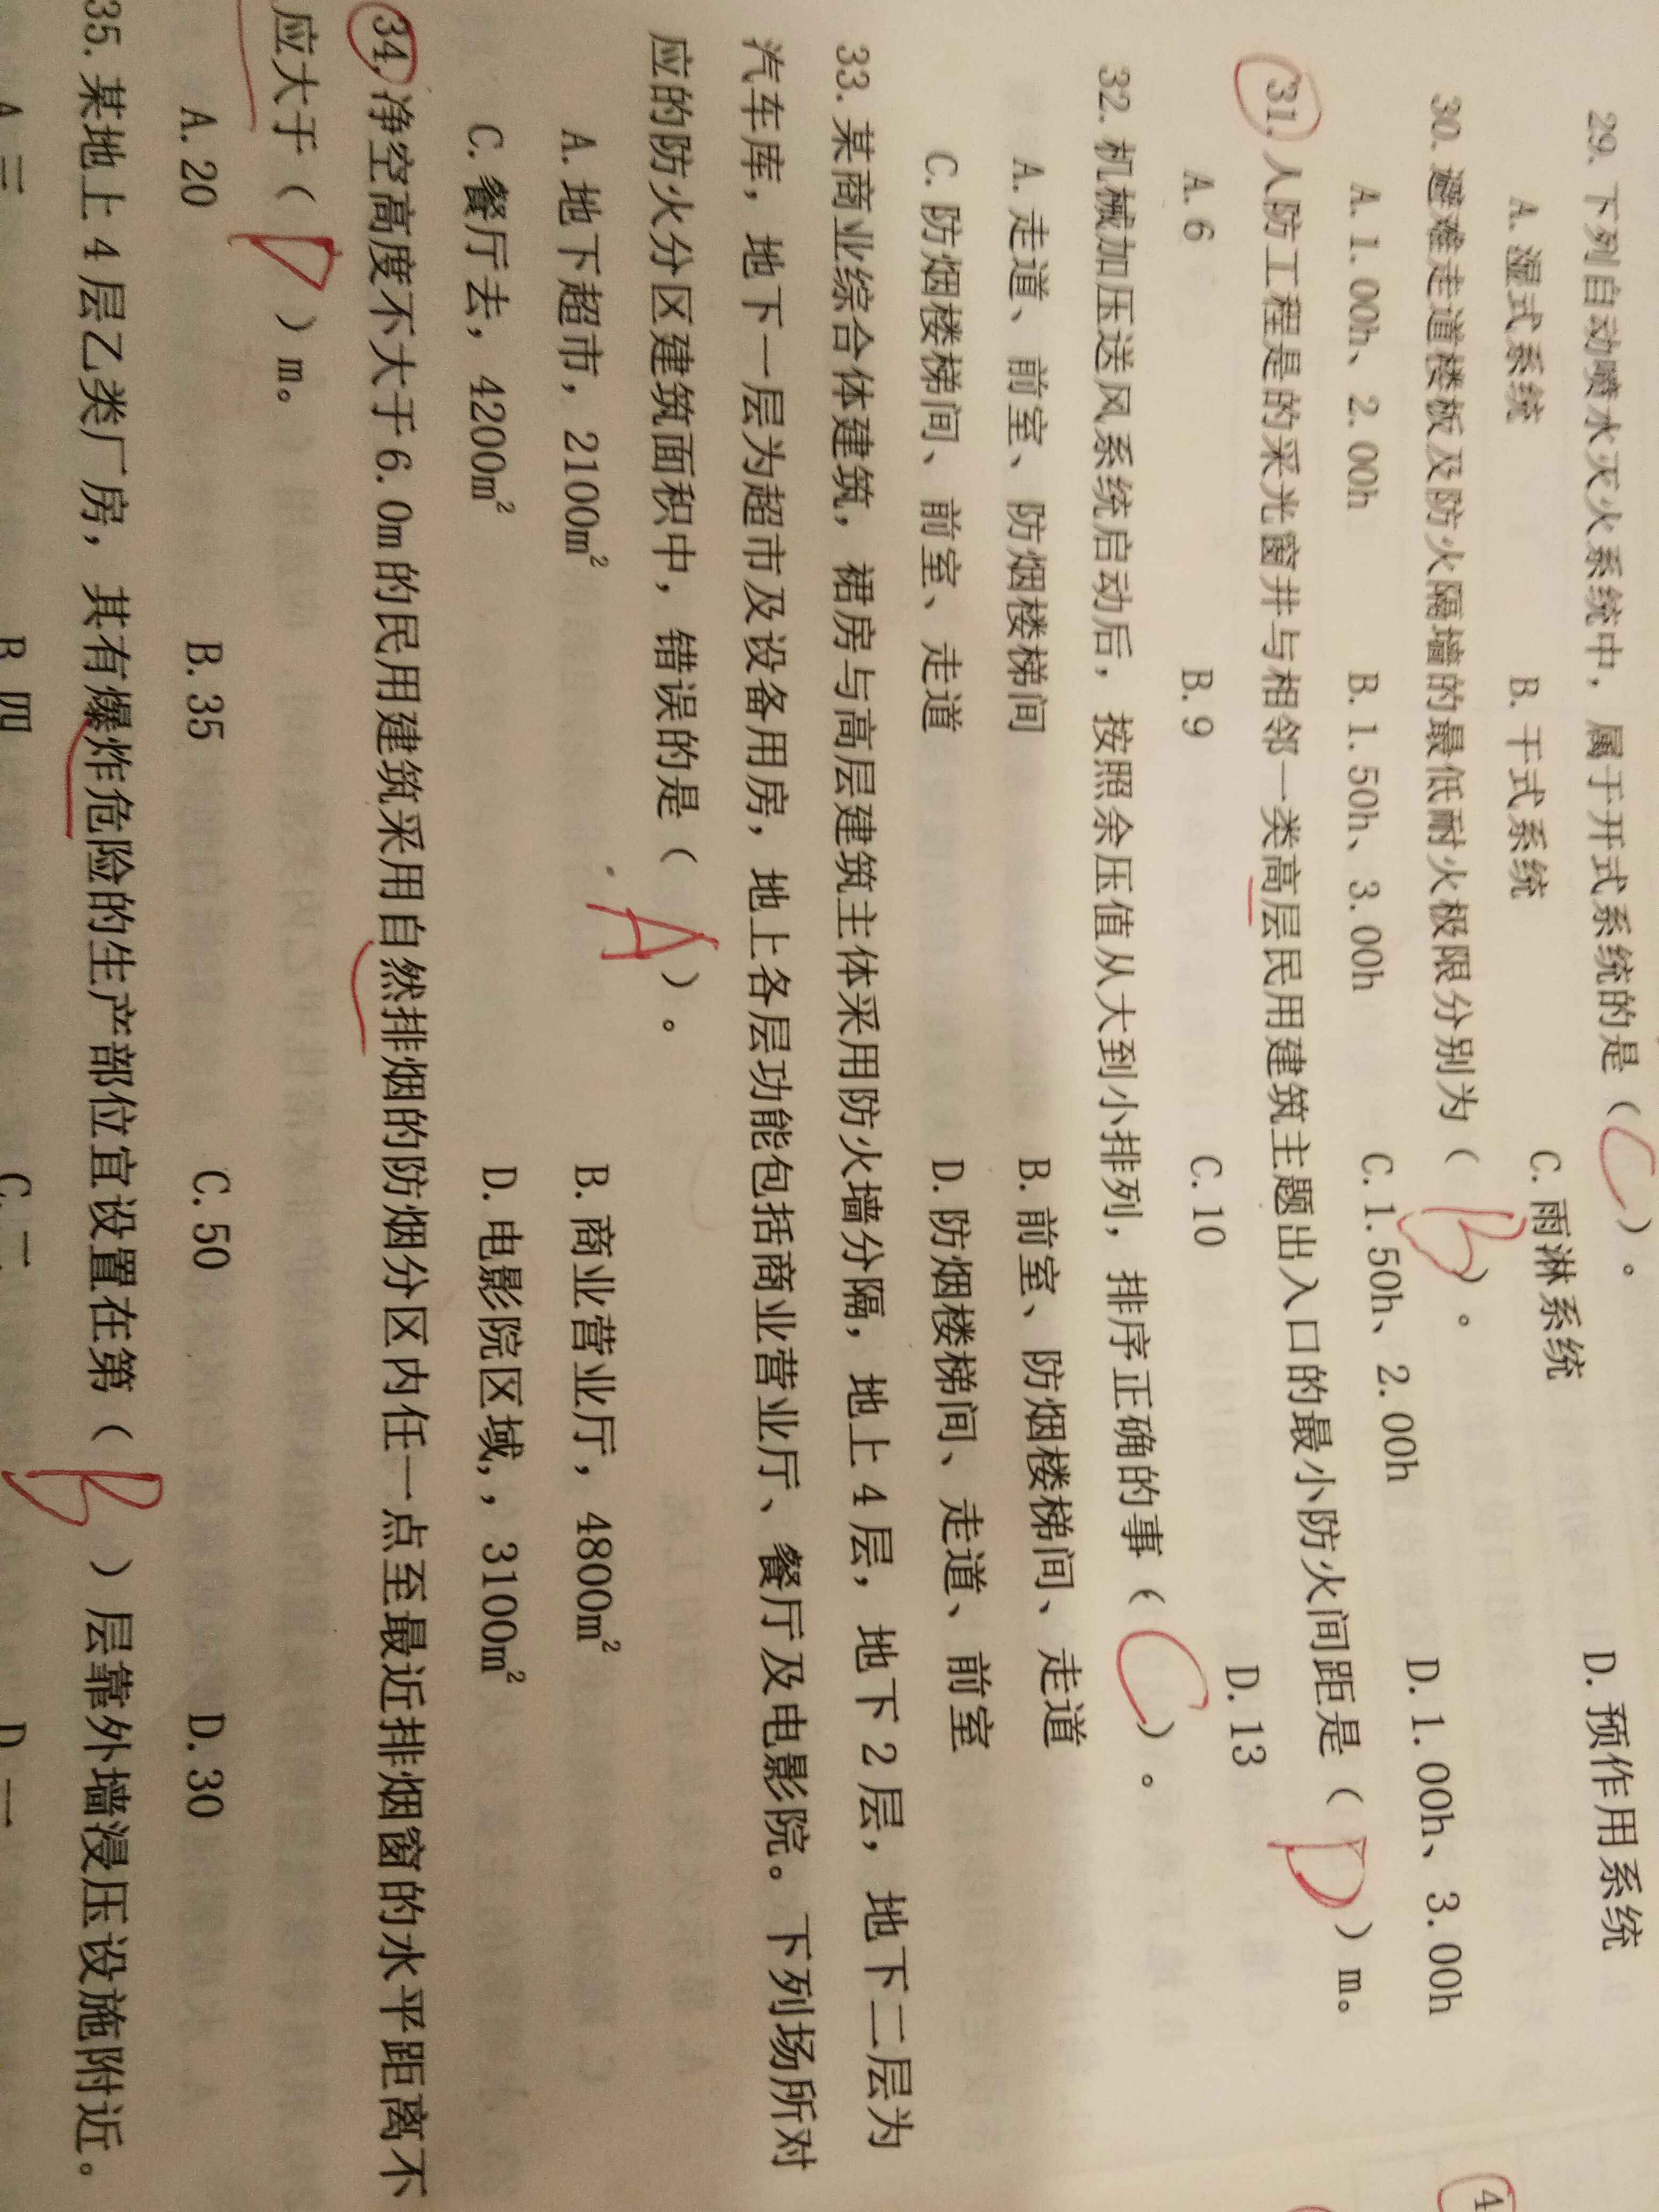 29. 下列自动喷水灭火系统中，属于开式系统的是（ C ）。
A. 湿式系统 B. 干式系统 C. 雨淋系统 D. 预作用系统
30. 避难走道楼板及防火隔墙的最低耐火极限分别为（ B ）。
A. 1.00h、2.00h B. 1.50h、3.00h C. 1.50h、2.00h D. 1.00h、3.00h
31. 人防工程是的采光窗井与相邻一类高层民用建筑主题出入口的最小防火间距是（ D ）m。
A. 6 B. 9 C. 10 D. 13
32. 机械加压送风系统启动后，按照余压值从大到小排列，排序正确的事（ C ）。
A. 走道、前室、防烟楼梯间 B. 前室、防烟楼梯间、走道
C. 防烟楼梯间、前室、走道 D. 防烟楼梯间、走道、前室
33. 某商业综合体建筑，裙房与高层建筑主体采用防火墙分隔，地上 4 层，地下 2 层，地下二层为
汽车库，地下一层为超市及设备用房，地上各层功能包括商业营业厅、餐厅及电影院。下列场所对
应的防火分区建筑面积中，错误的是（ A ）。
A. 地下超市，2100m² B. 商业营业厅，4800m²
C. 餐厅去，4200m² D. 电影院区域,，3100m²
34. 净空高度不大于 6.0m 的民用建筑采用自然排烟的防烟分区内任一点至最近排烟窗的水平距离不
应大于（ D ）m。
A. 20 B. 35 C. 50 D. 30
35. 某地上 4 层乙类厂房，其有爆炸危险的生产部位宜设置在第（ B ）层靠外墙浸压设施附近。
A 三 B 四 C. 二 D 一
4